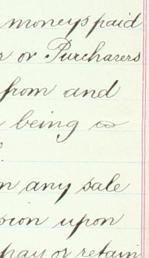 moneys paid
or Purchasers
from and
being a
n any sale
sion upon
pay or retain